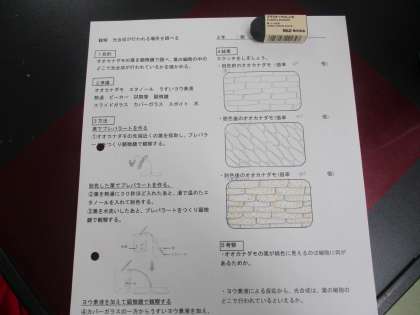 観察 光合成が行われる場所を調べる
1 目的
オオカナダモの葉を顕微鏡で調べ、葉の細胞の中の
どこで光合成が行われているかを確かめる。
2 準備
オオカナダモ エタノール うすいヨウ素液
熱湯 ビーカー
スライドガラス カバーガラス スポイト 水
3 方法
葉でプレパラートを作る
①オオカナダモの先端近くの葉を採取し、プレパラ
ートをつくり顕微鏡で観察する。
脱色した葉でプレパラートを作る。
ノールを入れて脱色する。
③葉を水洗いしたあと、プレパラートをつくり顕微
鏡で観察する。
ヨウ素液を加えて顕微鏡で観察する
④カバーガラスの一方からうすいヨウ素液を加え、
2年 組
4 結果
スケッチをしましょう。
・脱色前のオオカナダモ(倍率 倍)
・脱色後のオオカナダモ(倍率 倍)
5 考察
・オオカナダモの葉が緑色に見えるのは細胞に何が
あるためか。
・ヨウ素液による反応から、光合成は、葉の細胞の
どこで行われているといえるか。
MUJI 無印良品